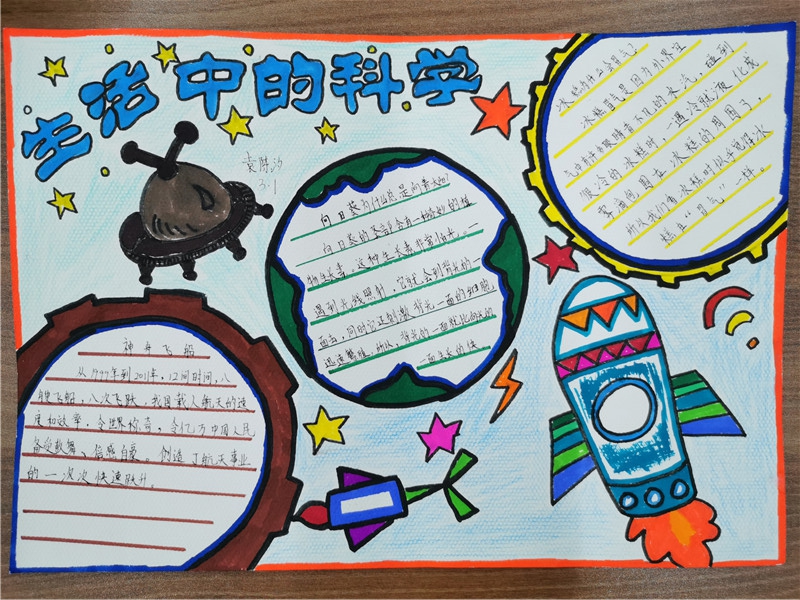 生活中的科学
袁陈汐
3.1
向日葵为什么总是向着太阳
向日葵的茎部含有一种奇妙的植
物生长素。这种生长素非常怕光。一
遇到光线照射,它就会到背光的一
面去,同时它还刺激背光一面的细胞
迅速繁殖,所以,背光的一面就比向光的
一面生长的快
冰糕为什么会冒气?
冰糕冒气是因为外界空
气中有许多眼睛看不见的水汽,碰到
很冷的冰糕时,一遇冷就液化成
雾滴包围在冰糕的周围了。
所以我们看冰糕时似乎觉得冰
糕在“冒气”一样。
神舟飞船
从1999年到2011年,12间时间,八
艘飞船,八次飞跃,我国载人航天的速
度和效率,令世界惊奇,令亿万中国人民
备受鼓舞、倍感自豪。创造了航天事业
的一次次快速跃升。